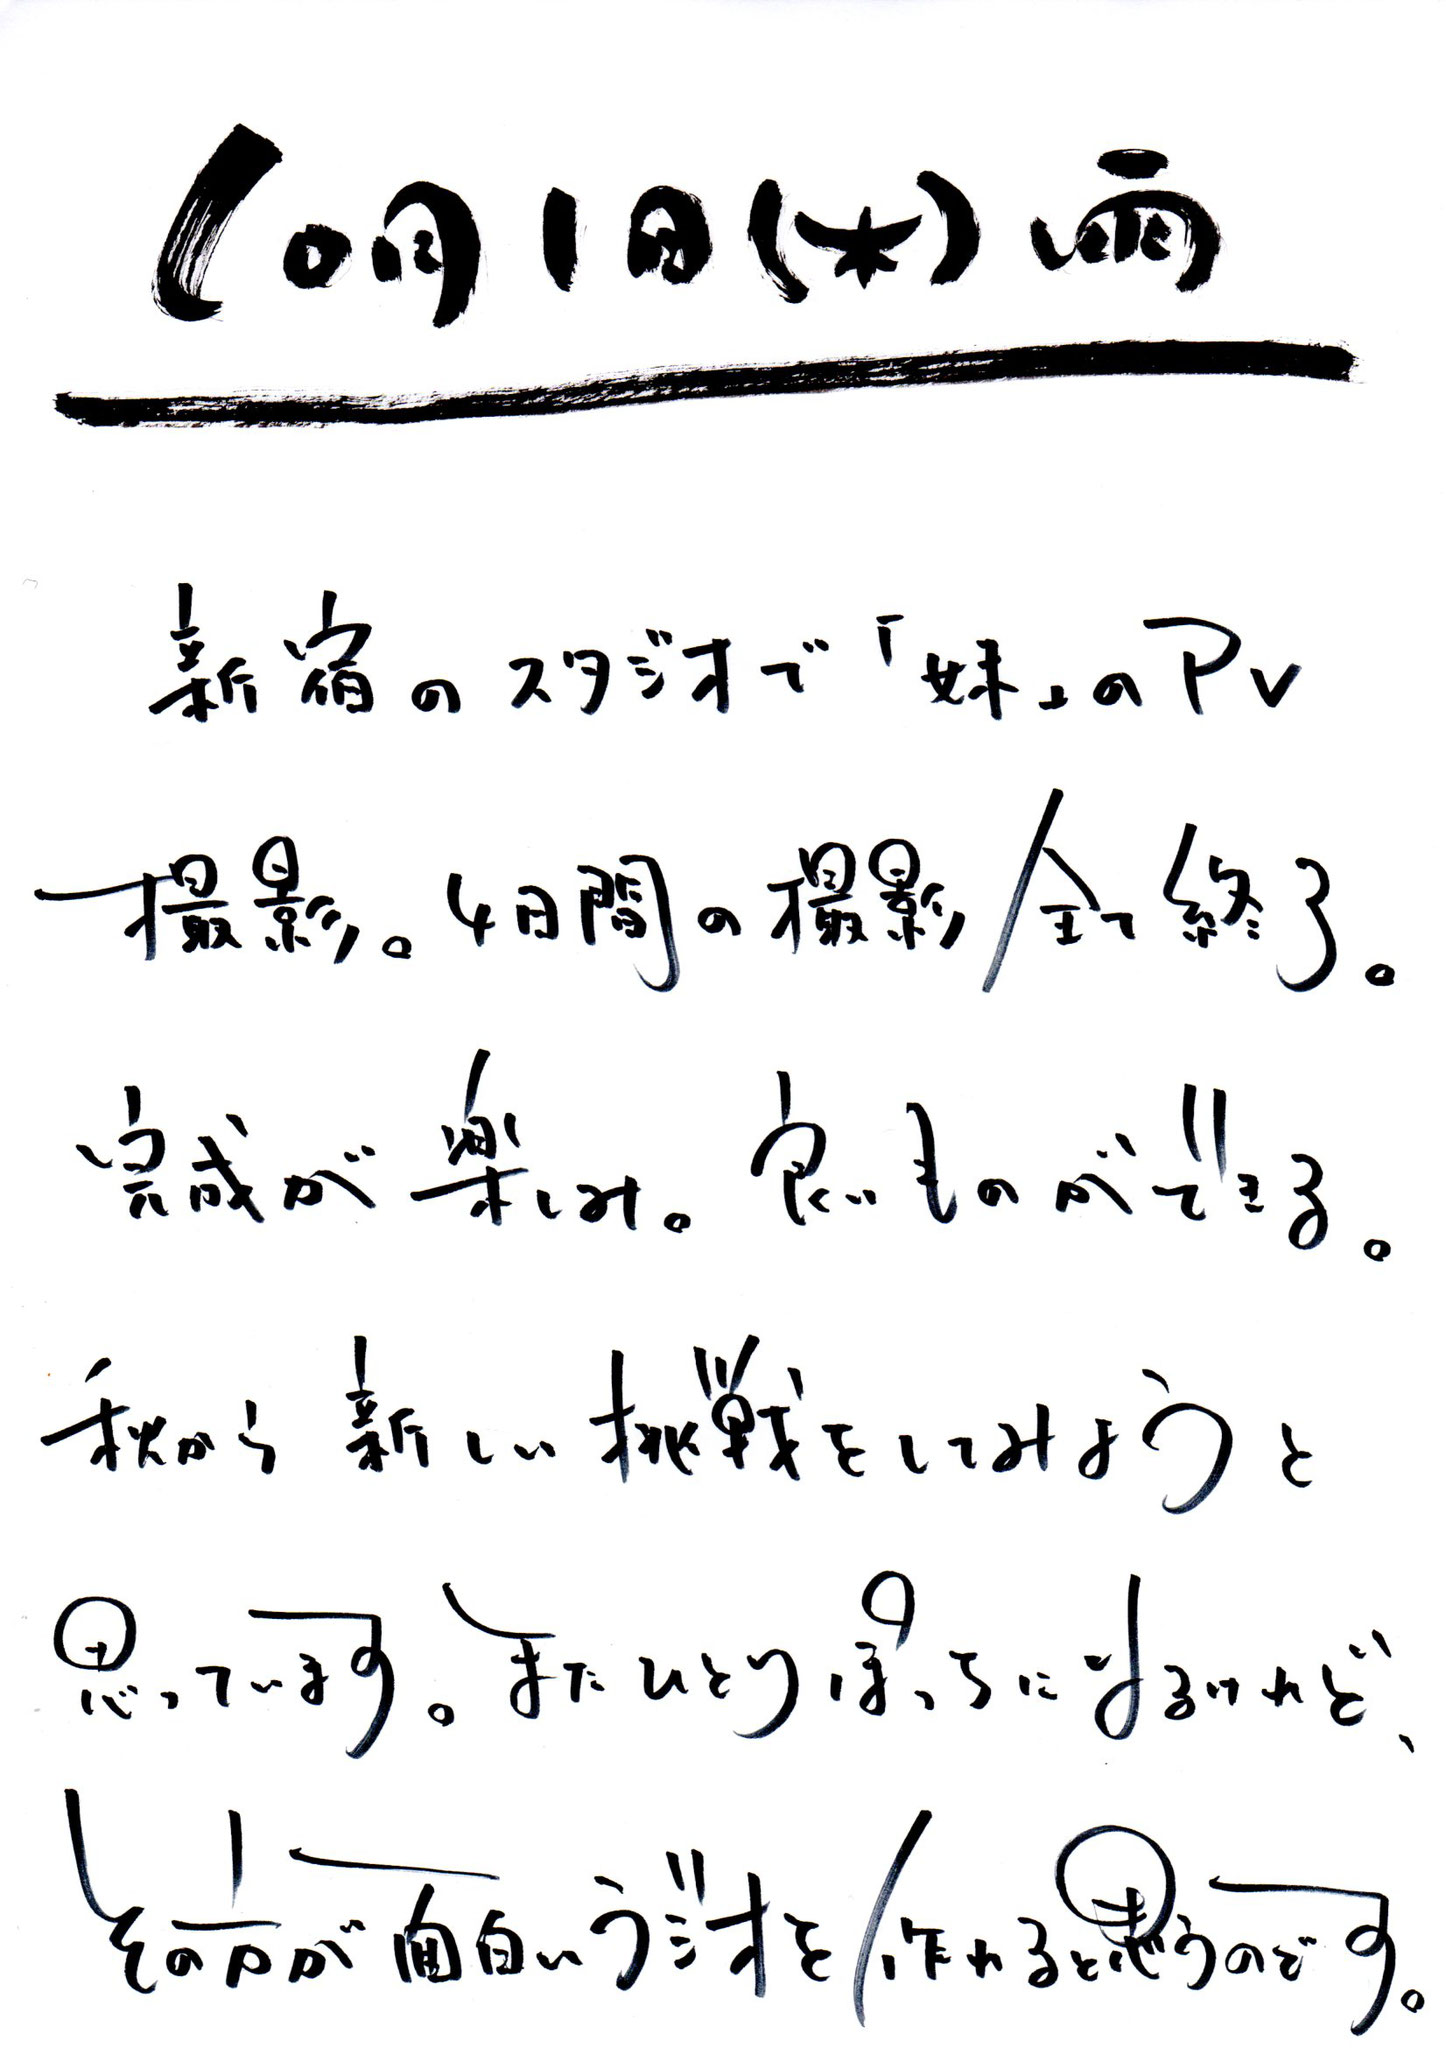 10月1日(木)雨
新宿のスタジオで「妹」のPV
撮影。4日間の撮影全て終了。
完成が楽しみ。良いものができる。
秋から新しい挑戦をしてみようと
思っています。またひとりぼっちになるけれど、
その方が面白いラジオを作れると思うのです。